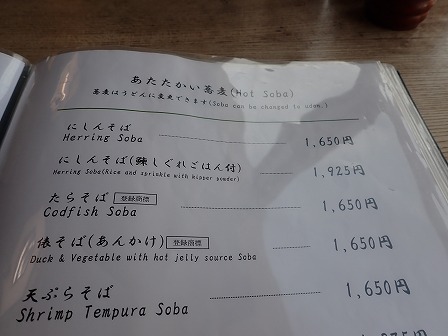 あたたかい蕎麦(Hot Soba)
蕎麦はうどんに変更できます(Soba can be changed to udon.)
にしんそば 1,650円
Herring Soba
にしんそば(鰊しぐれごはん付) 1,925円
Herring Soba(Rice and sprinkle with kipper powder)
たらそば 登録商標 1,650円
Codfish Soba
俵そば(あんかけ) 登録商標 1,650円
Duck & Vegetable with hot jelly source Soba
天ぷらそば 1,650円
Shrimp Tempura Soba